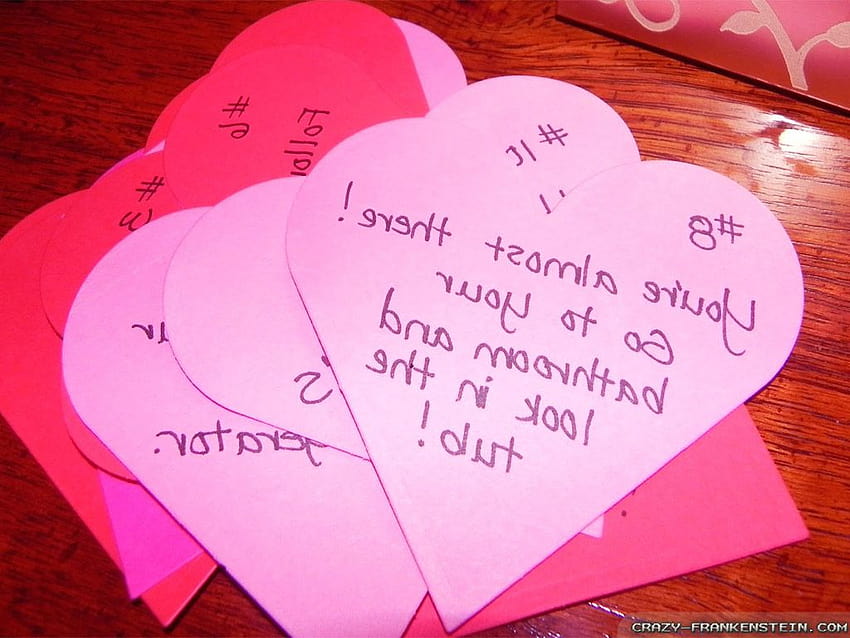 #8
You're almost there!
Go to your
bathroom and
look in the
tub!
#6
Follo
#3
ur
's
gerator.
CRAZY-FRANKENSTEIN.COM